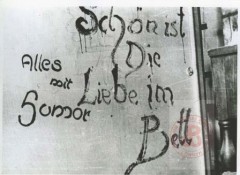 Schön ist
Die
Liebe im
Bett
Alles
mit
Homor